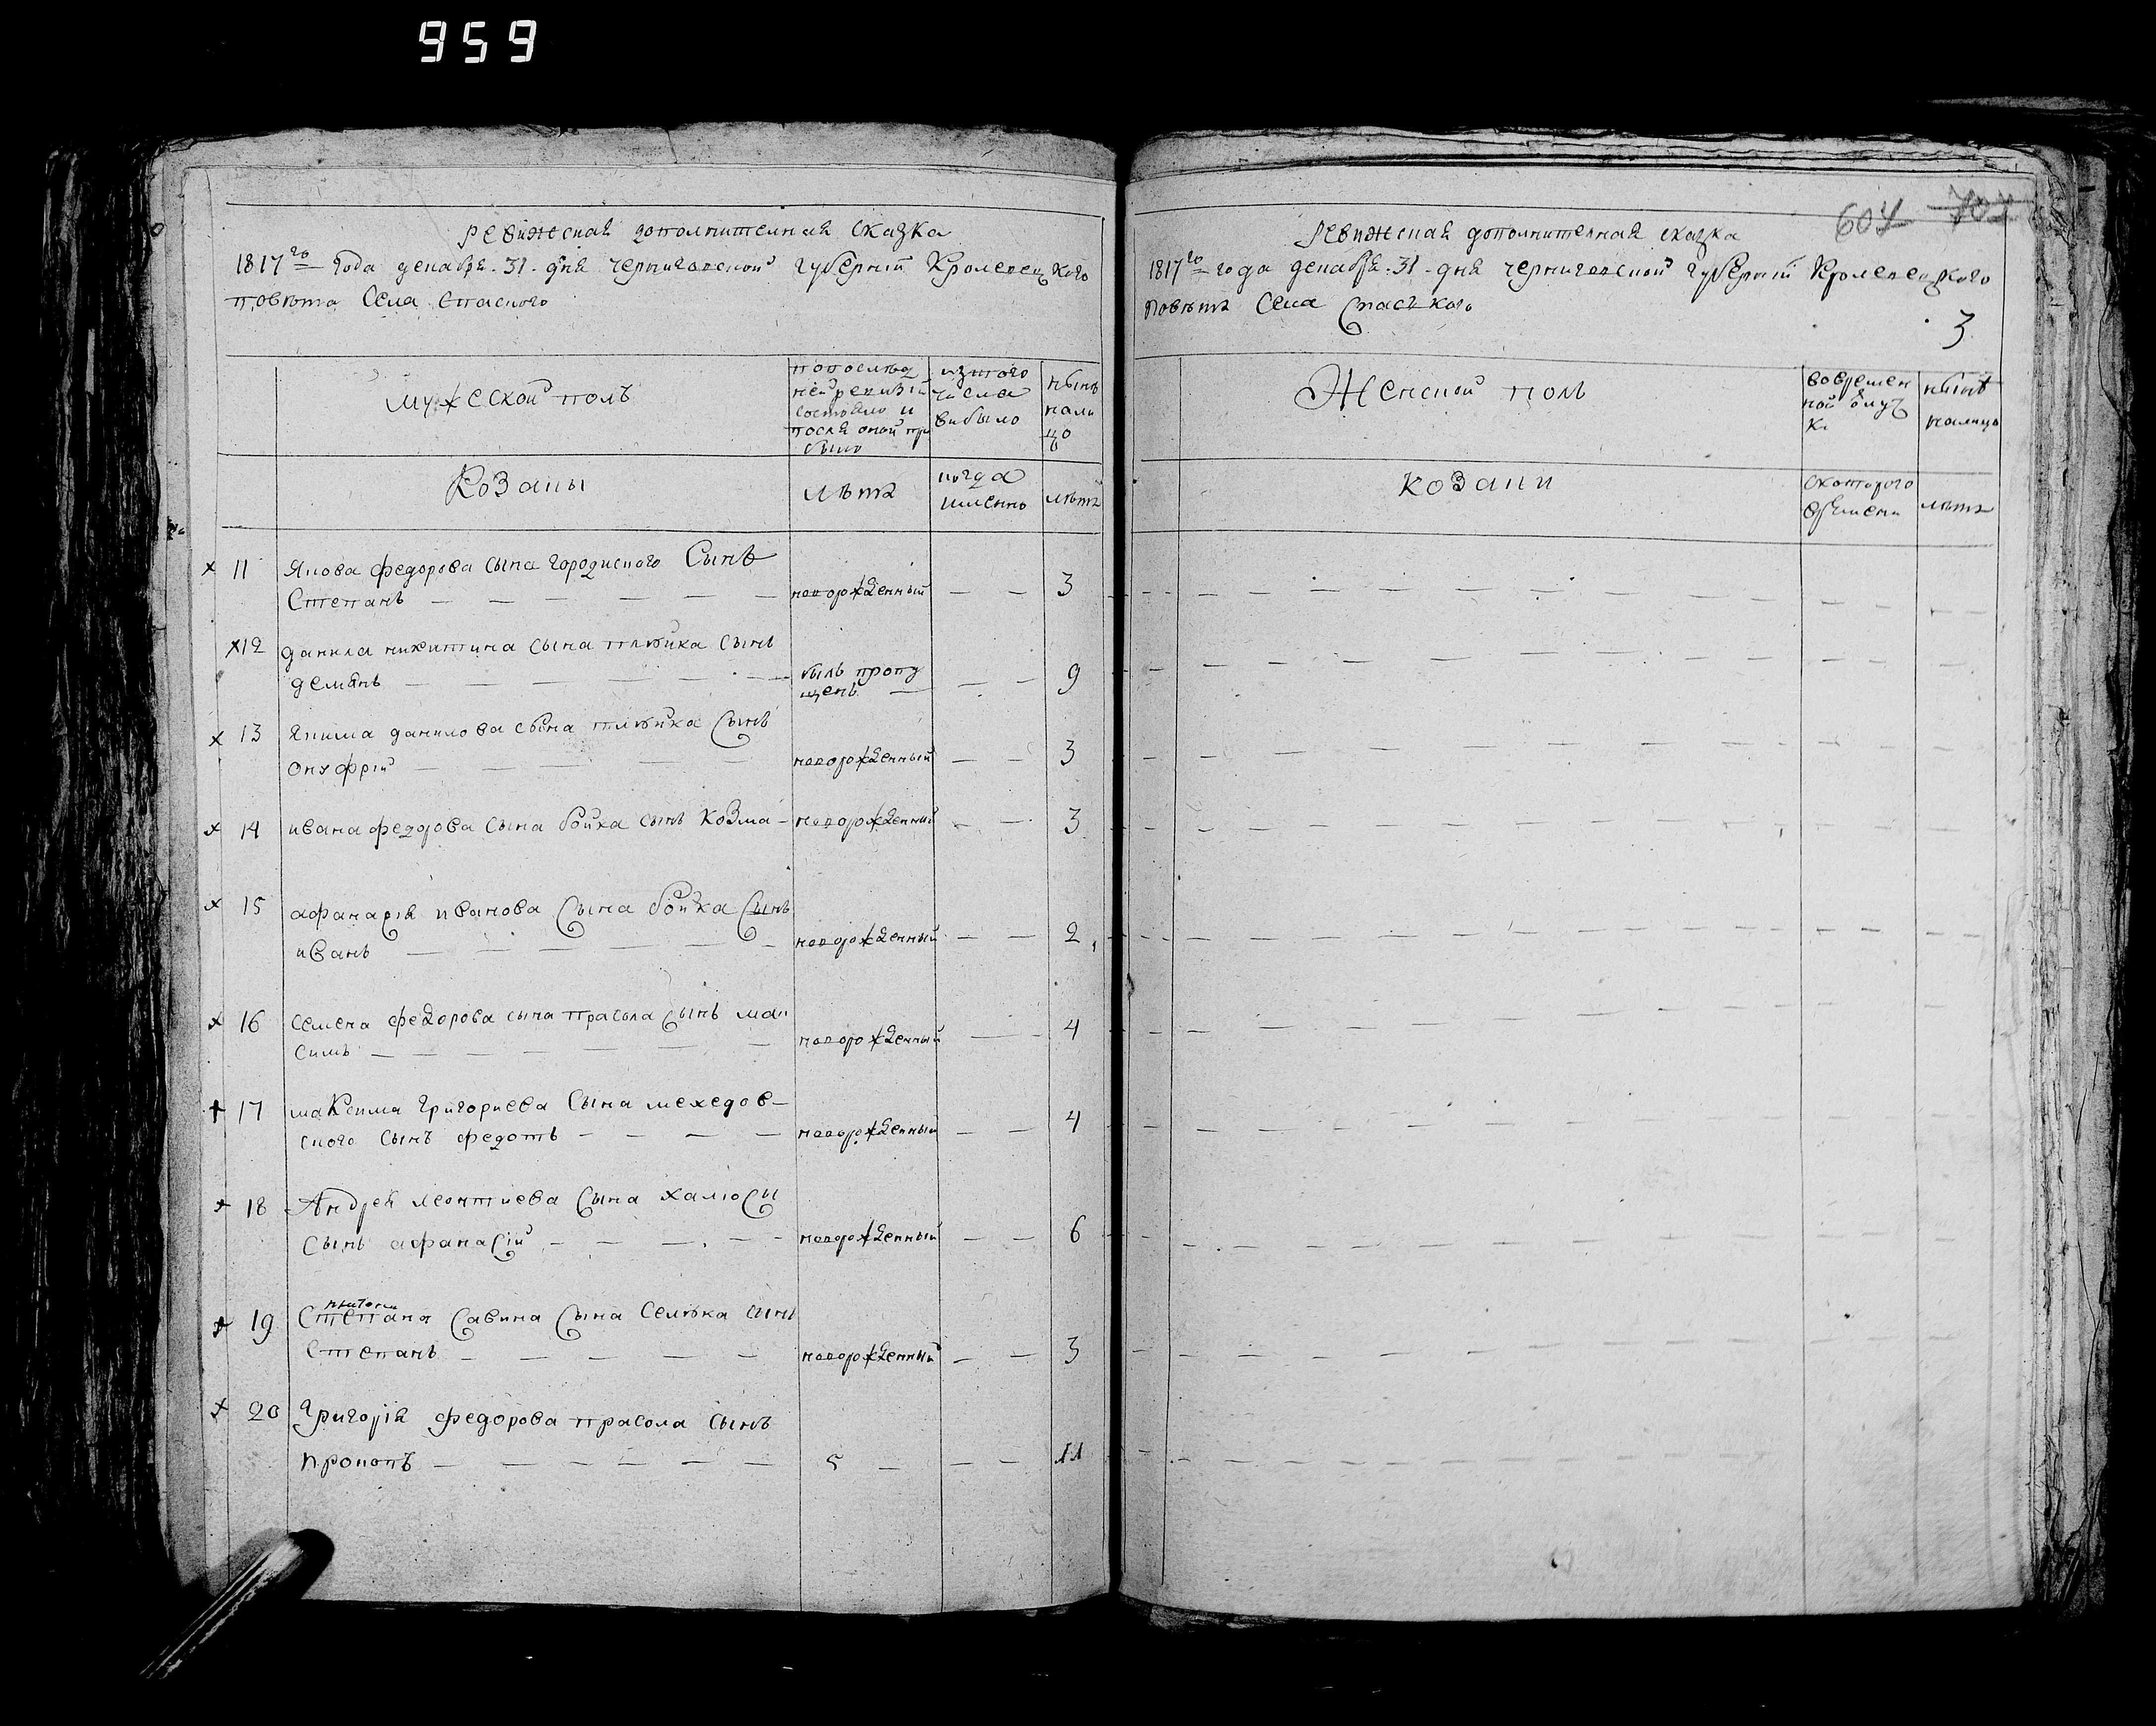 959
Ревижская дополнителная сказка
1817го года декабря 31 дня черниговской губерний Кролевецкого
повѣта Села Спаского
мужеской полъ
попослѣд
ней ревизій
состояло и
после оной при
было
изтого
числа
выбыло
нынѣ
нали
цо
Козаки
лѣта
когда
имѣнно
лѣта
11 Якова федорова сына городиского Сынъ
Степанъ новорожденный 3
12 данила никитина сына плѣвика сынъ
демянъ былъ пропу
щенъ 9
13 якима данилова сына плѣвика Сынъ
онуфрій новорожденный 3
14 ивана федорова сына бойка сынъ козма новорожденный 3
15 афанасія иванова Сына бойка Сынъ
иванъ новорожденный 2
16 семена федорова сына прасола сынъ мак
симъ новорожденный 4
17 максима григориева Сына мехедов-
ского сынъ федотъ новорожденный 4
18 Андрея леонтиева Сына халюсы
Сынъ афанасій новорожденный 6
19 Степана Савина Сына Селѣка сынъ
Степанъ новорожденный 3
20 Григорія федорова прасола сынъ
прокопъ 5 11
607 707
Ревижская дополнителная сказка
1817го года декабря 31 дня черниговской губерний Кролевецкого
Повѣта Села Спаского
3
Женской полъ
вовремен
ной отлуч
ки
нынѣ
налицо
козаки
скоторого
времени
лѣта